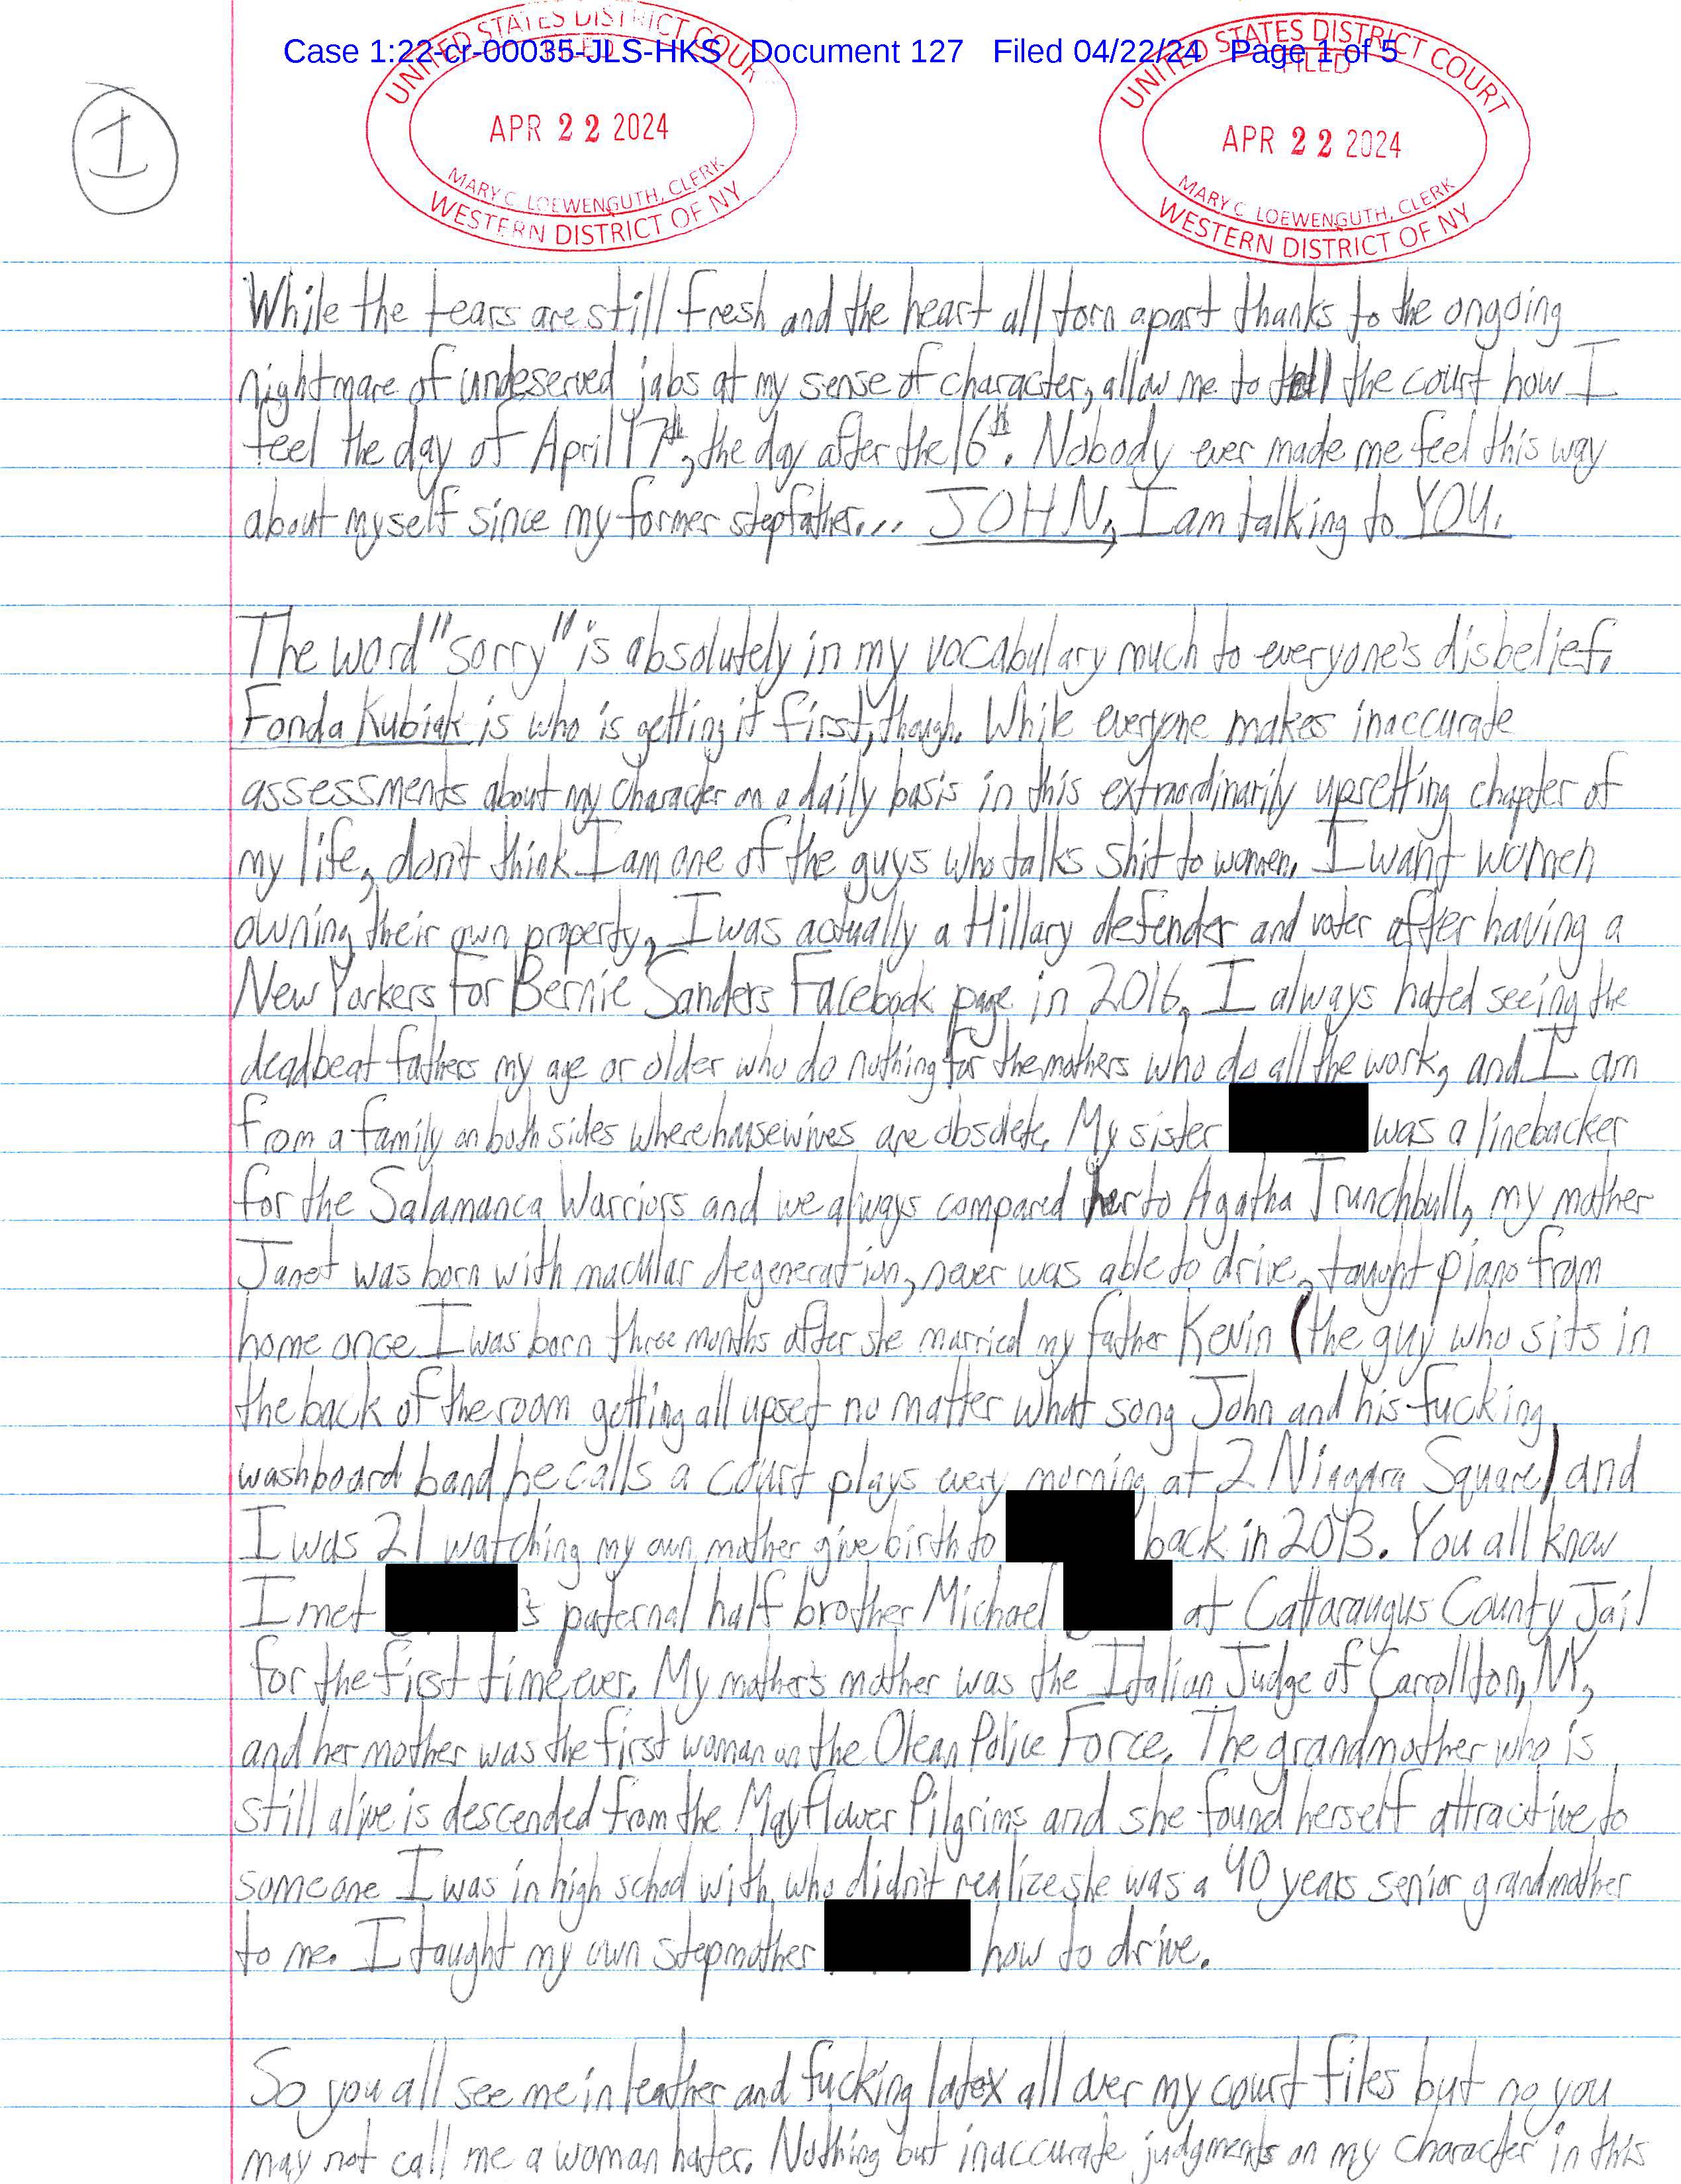 Case 1:22-cr-00035-JLS-HKS Document 127 Filed 04/22/24 Page 1 of 5
UNITED STATES DISTRICT COURT
FILED
APR 22 2024
MARY C. LOEWENGUTH, CLERK
WESTERN DISTRICT OF NY
UNITED STATES DISTRICT COURT
FILED
APR 22 2024
MARY C. LOEWENGUTH, CLERK
WESTERN DISTRICT OF NY
1
While the tears are still fresh and the heart all torn apart thanks to the ongoing
nightmare of undeserved jabs at my sense of character, allow me to tell the court how I
feel the day of April 17th, the day after the 16th. Nobody ever made me feel this way
about myself since my former stepfather... JOHN, I am talking to YOU.
The word "sorry" is absolutely in my vocabulary much to everyone's disbelief.
Fonda Kubiak is who is getting it first, though. While everyone makes inaccurate
assessments about my character on a daily basis in this extraordinarily upsetting chapter of
my life, don't think I am one of the guys who talks shit to women. I want women
owning their own property, I was actually a Hillary defender and voter after having a
New Yorkers for Bernie Sanders Facebook page in 2016, I always hated seeing the
deadbeat fathers my age or older who do nothing for the mothers who do all the work, and I am
from a family on both sides where housewives are obsolete. My sister was a linebacker
for the Salamanca Warriors and we always compared her to Agatha Trunchbull, my mother
Janet was born with macular degeneration, never was able to drive, taught piano from
home once I was born three months after she married my father Kevin (the guy who sits in
the back of the room getting all upset no matter what song John and his fucking
washboard band he calls a court plays every morning at 2 Niagara Square) and
I was 21 watching my own mother give birth to back in 2013. You all know
I met 's paternal half brother Michael at Cattaraugus County Jail
for the first time ever. My mother's mother was the Italian Judge of Carrollton, NY,
and her mother was the first woman on the Olean Police Force. The grandmother who is
still alive is descended from the Mayflower Pilgrims and she found herself attractive to
someone I was in high school with who didn't realize she was a 40 years senior grandmother
to me. I taught my own stepmother how to drive.
So you all see me in leather and fucking latex all over my court files but no you
may not call me a woman hater. Nothing but inaccurate judgments on my character in this